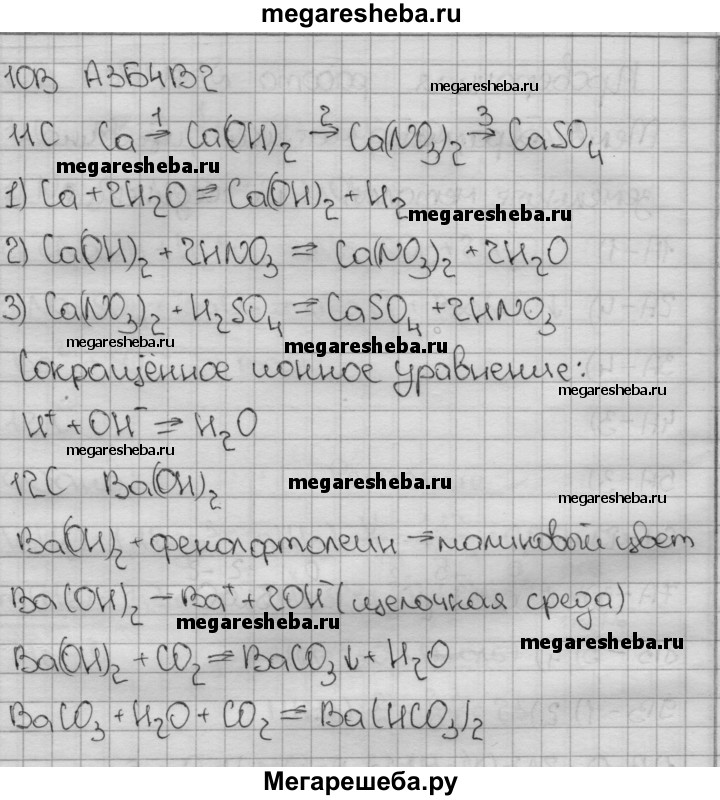 megaresheba.ru
10В А3Б4В2
megaresheba.ru
11С Ca →1 Ca(OH)2 →2 Ca(NO3)2 →3 CaSO4
megaresheba.ru
1) Ca + 2H2O = Ca(OH)2 + H2
megaresheba.ru
2) Ca(OH)2 + 2HNO3 = Ca(NO3)2 + 2H2O
3) Ca(NO3)2 + H2SO4 = CaSO4 + 2HNO3
megaresheba.ru megaresheba.ru
Сокращённое ионное уравнение:
megaresheba.ru
H+ + OH- = H2O
megaresheba.ru
12С Ba(OH)2
megaresheba.ru megaresheba.ru
Ba(OH)2 + фенолфтолеин = малиновый цвет
Ba(OH)2 – Ba+ + 2OH- (щелочная среда)
megaresheba.ru megaresheba.ru
Ba(OH)2 + CO2 = BaCO3↓ + H2O
BaCO3 + H2O + CO2 = Ba(HCO3)2
Мегарешеба.ру